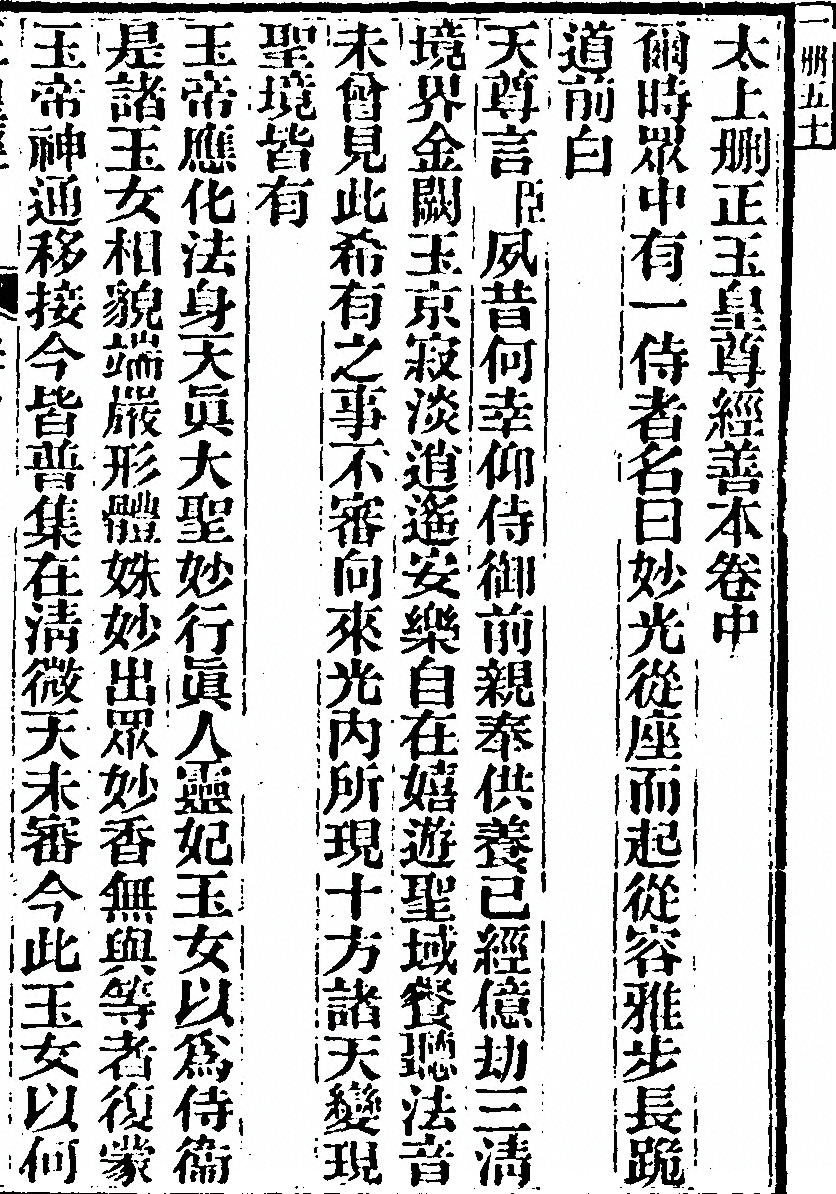 二 册五十
太上刪正玉皇尊經善本卷中
爾時眾中有一侍者名曰妙光從座而起從容雅步長跪
道前白
天尊言臣夙昔何幸仰侍御前親奉供養已經億劫三清
境界金闕玉京寂淡逍遙安樂自在嬉遊聖域餐聽法音
未曾見此希有之事不審向來光內所現十方諸天變現
聖境皆有
玉帝應化法身天眞大聖妙行眞人靈妃玉女以爲侍衞
是諸玉女相貌端嚴形體姝妙出眾妙香無與等者復蒙
玉帝神通移接今皆普集在淸微天未審今此玉女以何